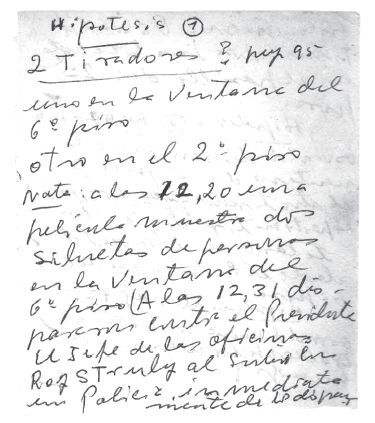 Hipotesis ①
2 Tiradores ? pag 95
uno en la Ventana del
6º piso
otro en el 2º piso
Nota: a las 12,20 una
pelicula muestra dos
siluetas de personas
en la Ventana del
6º piso (A las 12,31 dis-
pararon contra el Presidente
El Jefe de las oficinas
Roy S Truly al subir
un Policia, inmediata
mente de